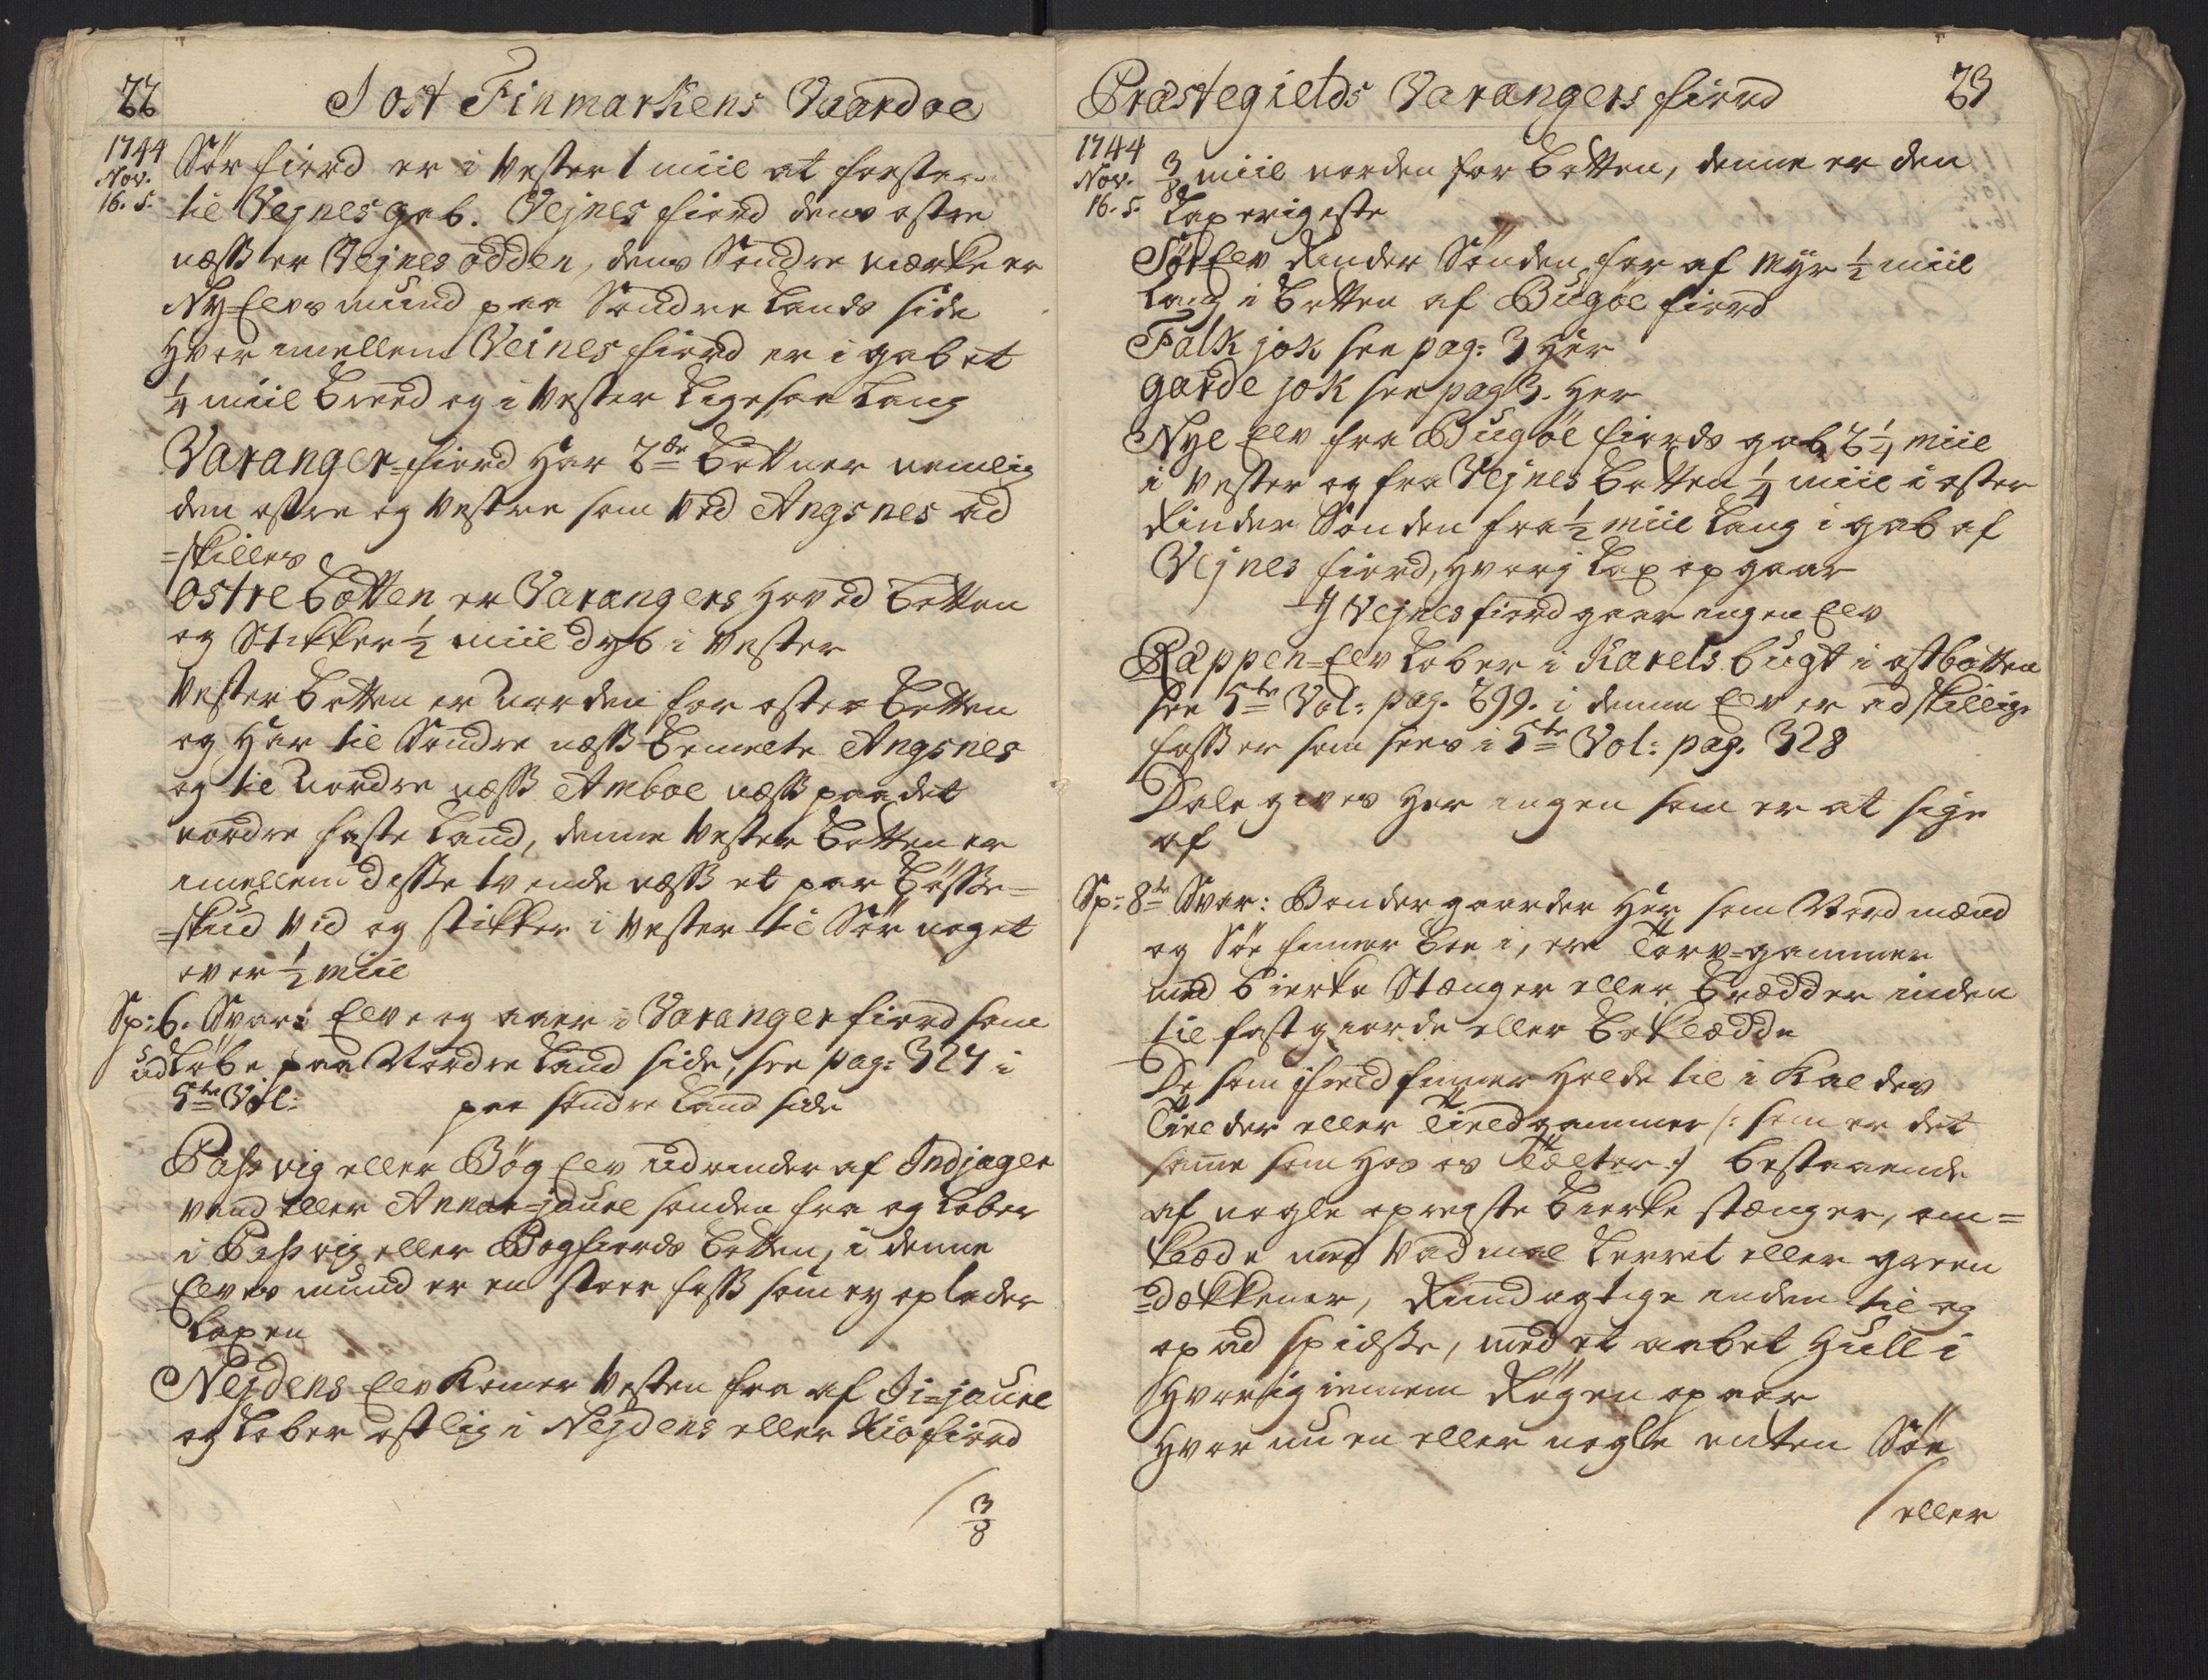 22
I ost Finmarkens Vaardøe
1744
Nov.
16. S.
Sör fiord er i Vester 1 miil at
til Vejnes gab. Vejnes fiord dens ostre
næss er Vejnes odden, dens Søndre mærke er
Ny-Elvs mund paa Søndre Lands side
hvor imellem Veines fiord er i gabet
1/4 miil breed og i Vester ligesaa lang
Varanger-fiord har 2de bottner nemlig
den ostre og Vestre som ved Angsnes ad
=skilles
Ostre botten er Varangers hoved botten
og Stikker 1/2 miil dyb i Vester
Vester botten er Norden for oster botten
og har til Søndre næss bemelte Angsnes
og til Nordre næss Amboe næss paa det
nordre faste Land, denne Vester botten er
imellem disse tvende næss et par bösse=
=skud vid og stikker i Vester til Sör noget
over 1/2 miil
Sp: 6. Svar: Elve og aaer i Varanger fiord som
udløbe paa Nordre Land side, see pag: 327 i
5te Vol: paa søndre Land side
Pasvig eller Bög Elv udrinder af Indjager
vand eller Annar=jaure sønden fra og løber
i Pasvig eller Bogfiords botten, i denne
Elves mund er en stoer foss som ey oplader
Laxen
Nejdens Elv kommer Vesten fra af Ii=jaure
og løber ostlig i Nejdens eller Kiøfiord
3/8
Præstegields Varangers fiord
23
1744
Nov.
16. S.
3/8 miil norden for botten, denne er den
Laxerigeste
Sör Elv rinder Sønden for af Myr 1/2 miil
lang i botten af Bugöe fiord
Falk jok see pag: 3 her
garde jok see pag 3. her
Nye Elv fra Bugöe fiords gab 2 1/4 miil
i Vester og fra Vejnes botten 1/4 miil i oster
rinder Sønden fra 1/2 miil lang i gab af
Vejnes fiord, hvorj Lax opgaar
I Vejnes fiord gaar ingen Elv
Ræppen-Elv løber i Karels bugt i ostbotten
see 5te Vol: pag. 299. i denne Elv er adskillige
fosser som sees i 5te Vol: pag. 328
Dale gives her ingen som er at sige
af
Sp: 8de Svar: Bonder gaarder her som Nordmænd
og Söe finner boe i, ere Törv=gammer
med birke Stænger eller brædder inden
til fastgiorde eller beklædde
De som fieldfinner holde til i kaldes
Tielder eller Tieldgammer /: som er det
samme som hos os Tælter :/ bestaaende
af nogle opregste birke stænger, om=
klæde med vadmel Lerret eller green
=dekkener, rundagtige inden til og
op ad spidse, med et aabet hull i
hvorigiennem Rögen opgaar
hvor nu en eller nogle enten Söe
eller